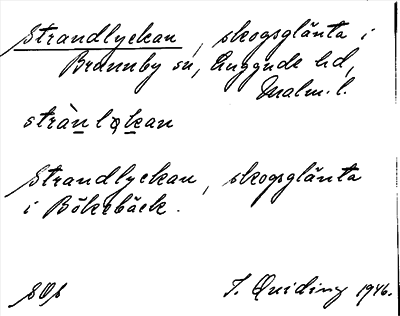 Strandlyckan, skogsglänta i
Brunnby sn, Luggude hd,
Malm. l.
strànlǫkan
Strandlyckan, skogsglänta
i Bökebäck.
T. Quiding 1946.